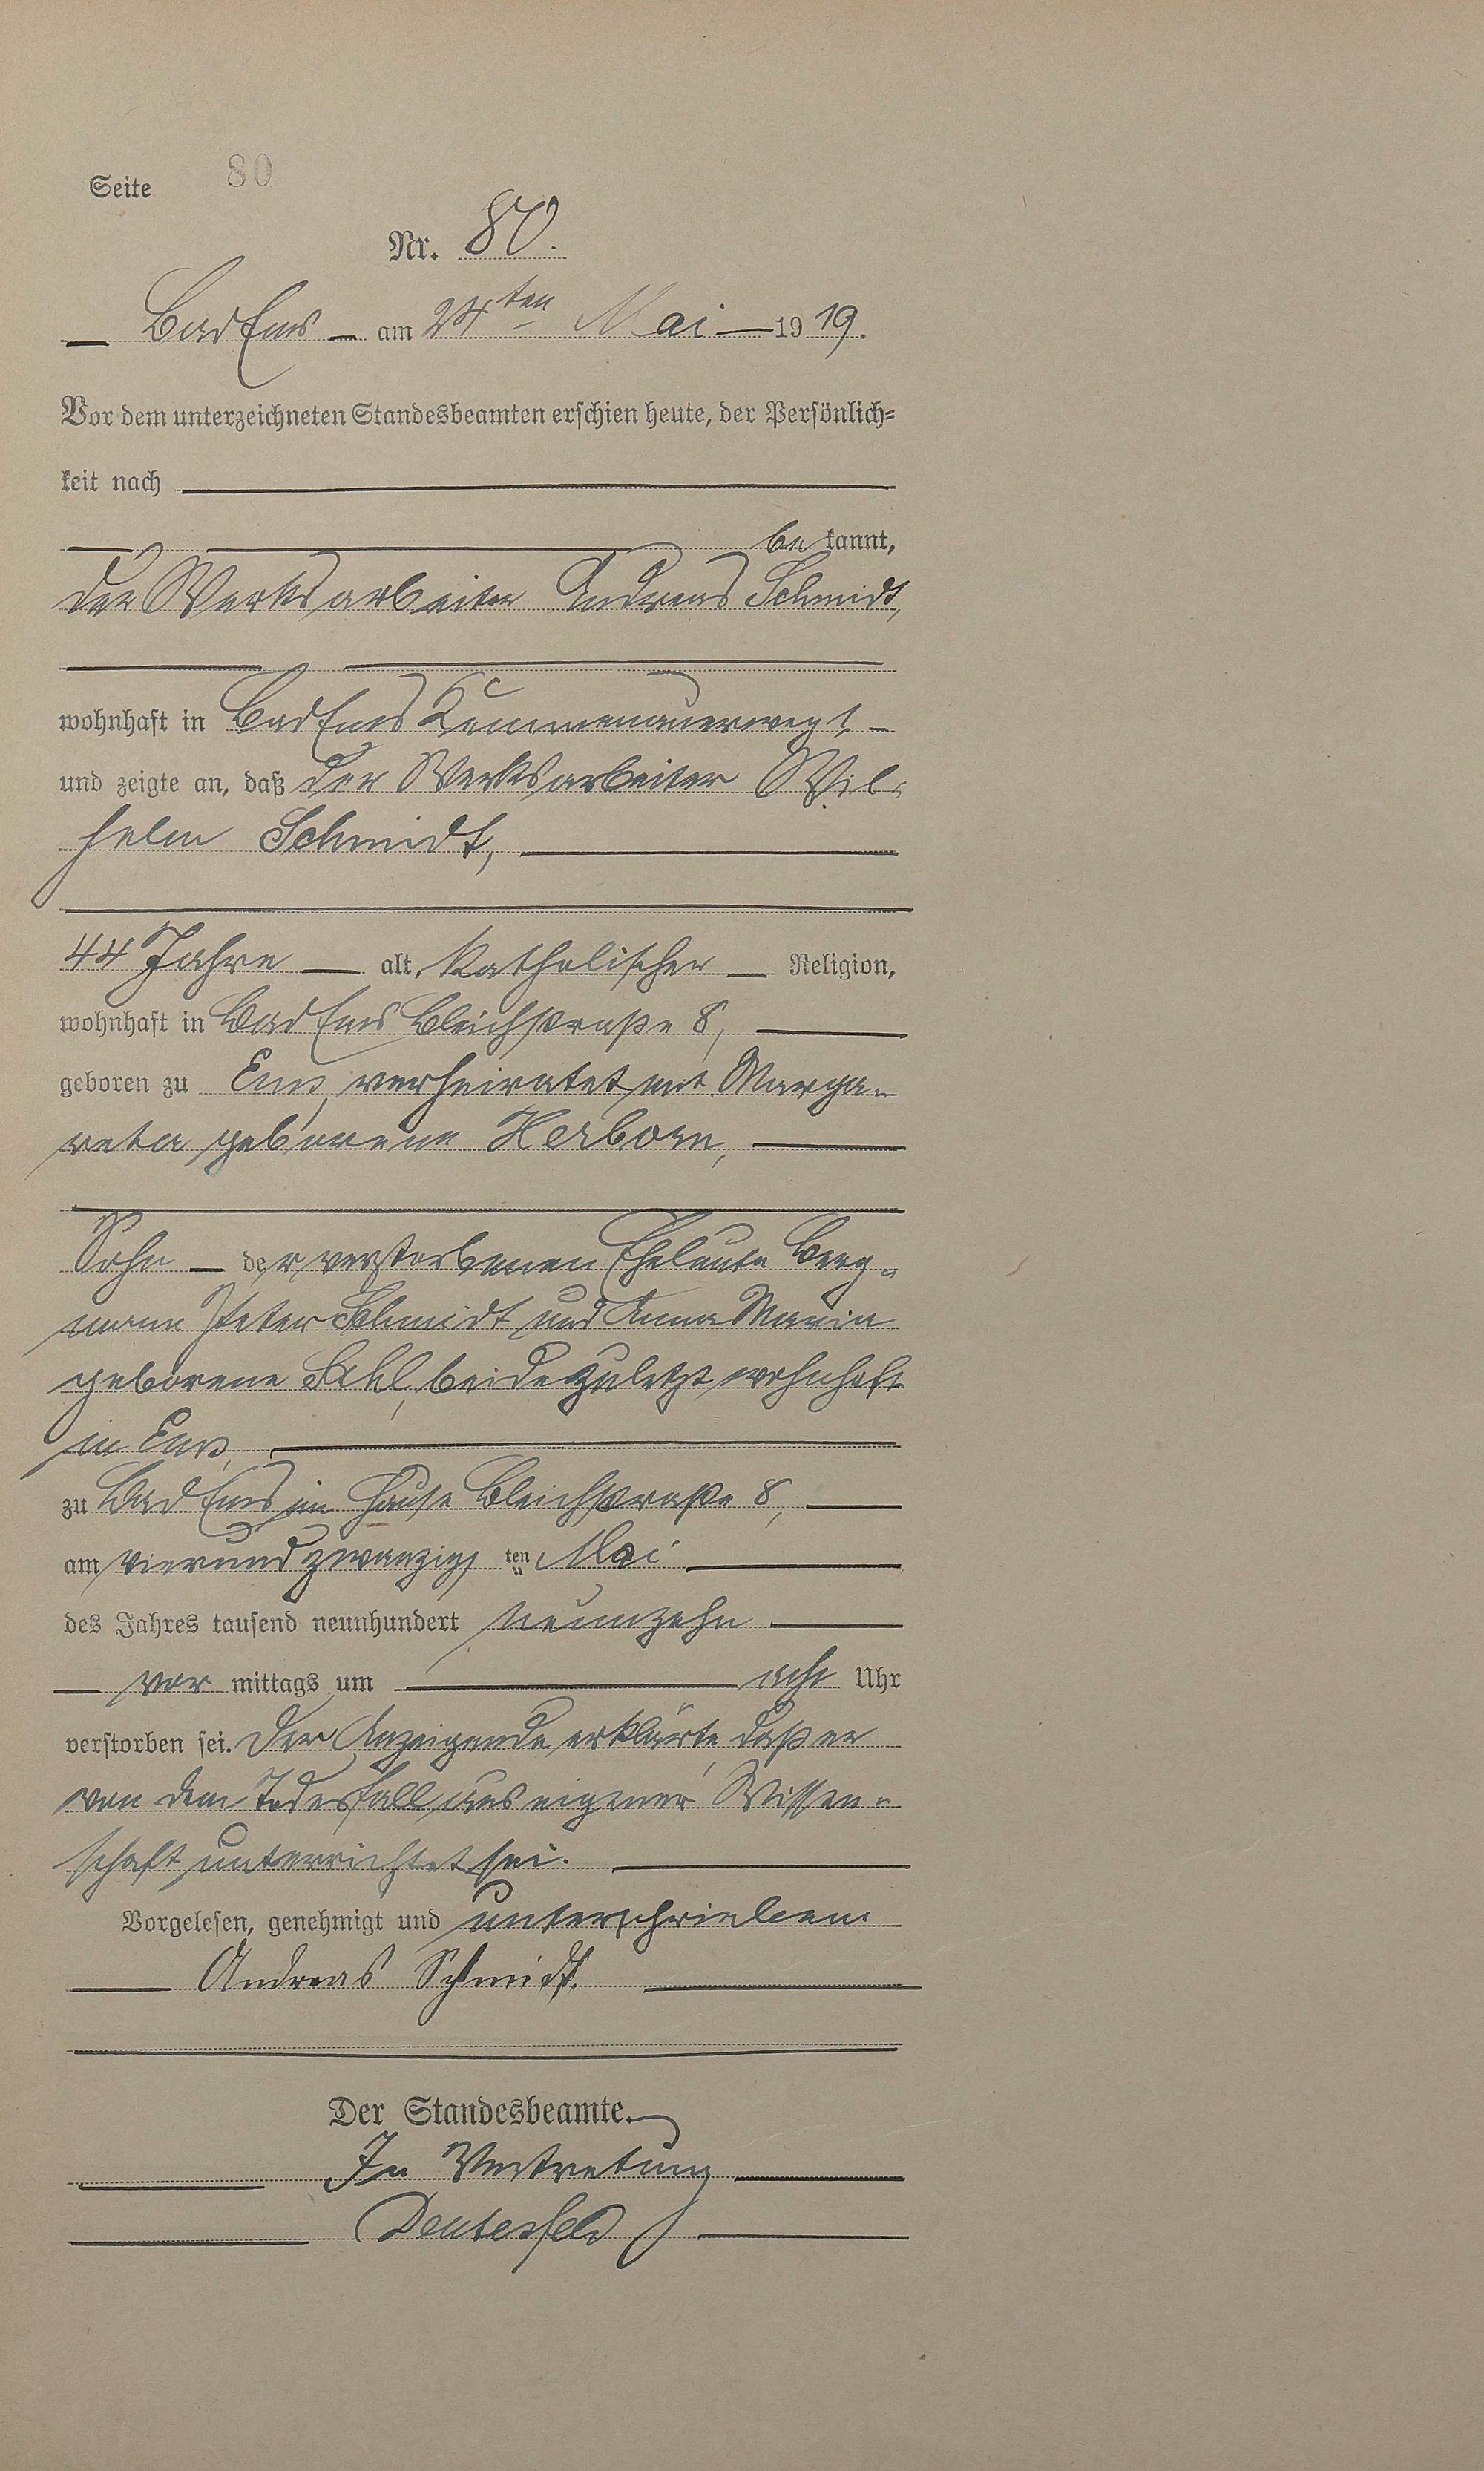 Seite 80
Nr. 80.
Bad Ems am 24ten Mai 1919.
Vor dem unterzeichneten Standesbeamten erschien heute, der Persönlich-
keit nach
bekannt,
der Werksarbeiter Andreas Schmidt,
wohnhaft in Bad Ems Kemmenauerweg 1
und zeigte an, daß der Werksarbeiter Wil-
helm Schmidt,
44 Jahre alt, katholischer Religion,
wohnhaft in Bad Ems Bleichstraße 8,
geboren zu Ems, verheiratet mit Marga-
reta geborene Herborn,
Sohn der verstorbenen Eheleute Berg-
mann Peter Schmidt und Anna Maria
geborene beide zuletzt wohnhaft
in Ems,
zu Bad Ems im Hause Bleichstraße 8,
am vierundzwanzigten Mai
des Jahres tausend neunhundert neunzehn
vormittags um acht Uhr
verstorben sei. Der Anzeigende erklärte, daß er
von dem Todesfall aus eigener Wissen-
schaft unterrichtet sei.
Vorgelesen, genehmigt und unterschrieben
Andreas Schmidt.
Der Standesbeamte.
In Vertretung
Deutesfeld